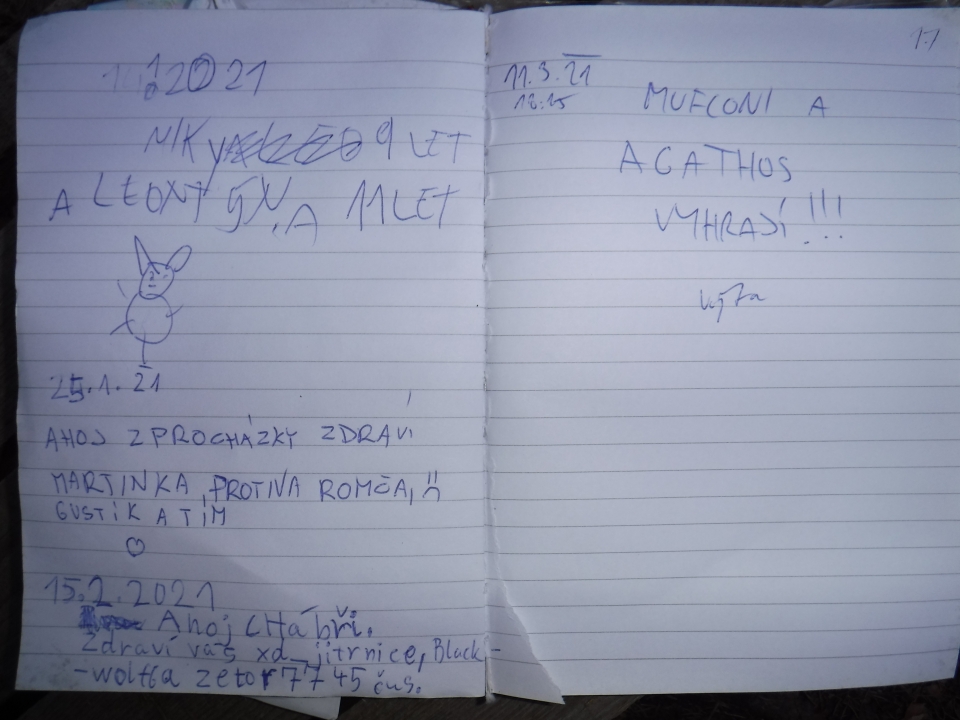 2021
NIKY 9 LET
A LEONT 11 LET
25.1.21
AHOJ Z PROCHÁZKY ZDRAVÍ
MARTINKA, PROTIVA ROMČA,
GUSTÍK A TÍM
15.2.2021
Ahoj CHábři.
Zdraví vás xd_jitrnice, Black-
-wolfka zetor 7745 čus.
17
11.3.21
18:15
MUFLONI A
AGATHOS
VYHRAJÍ!!!